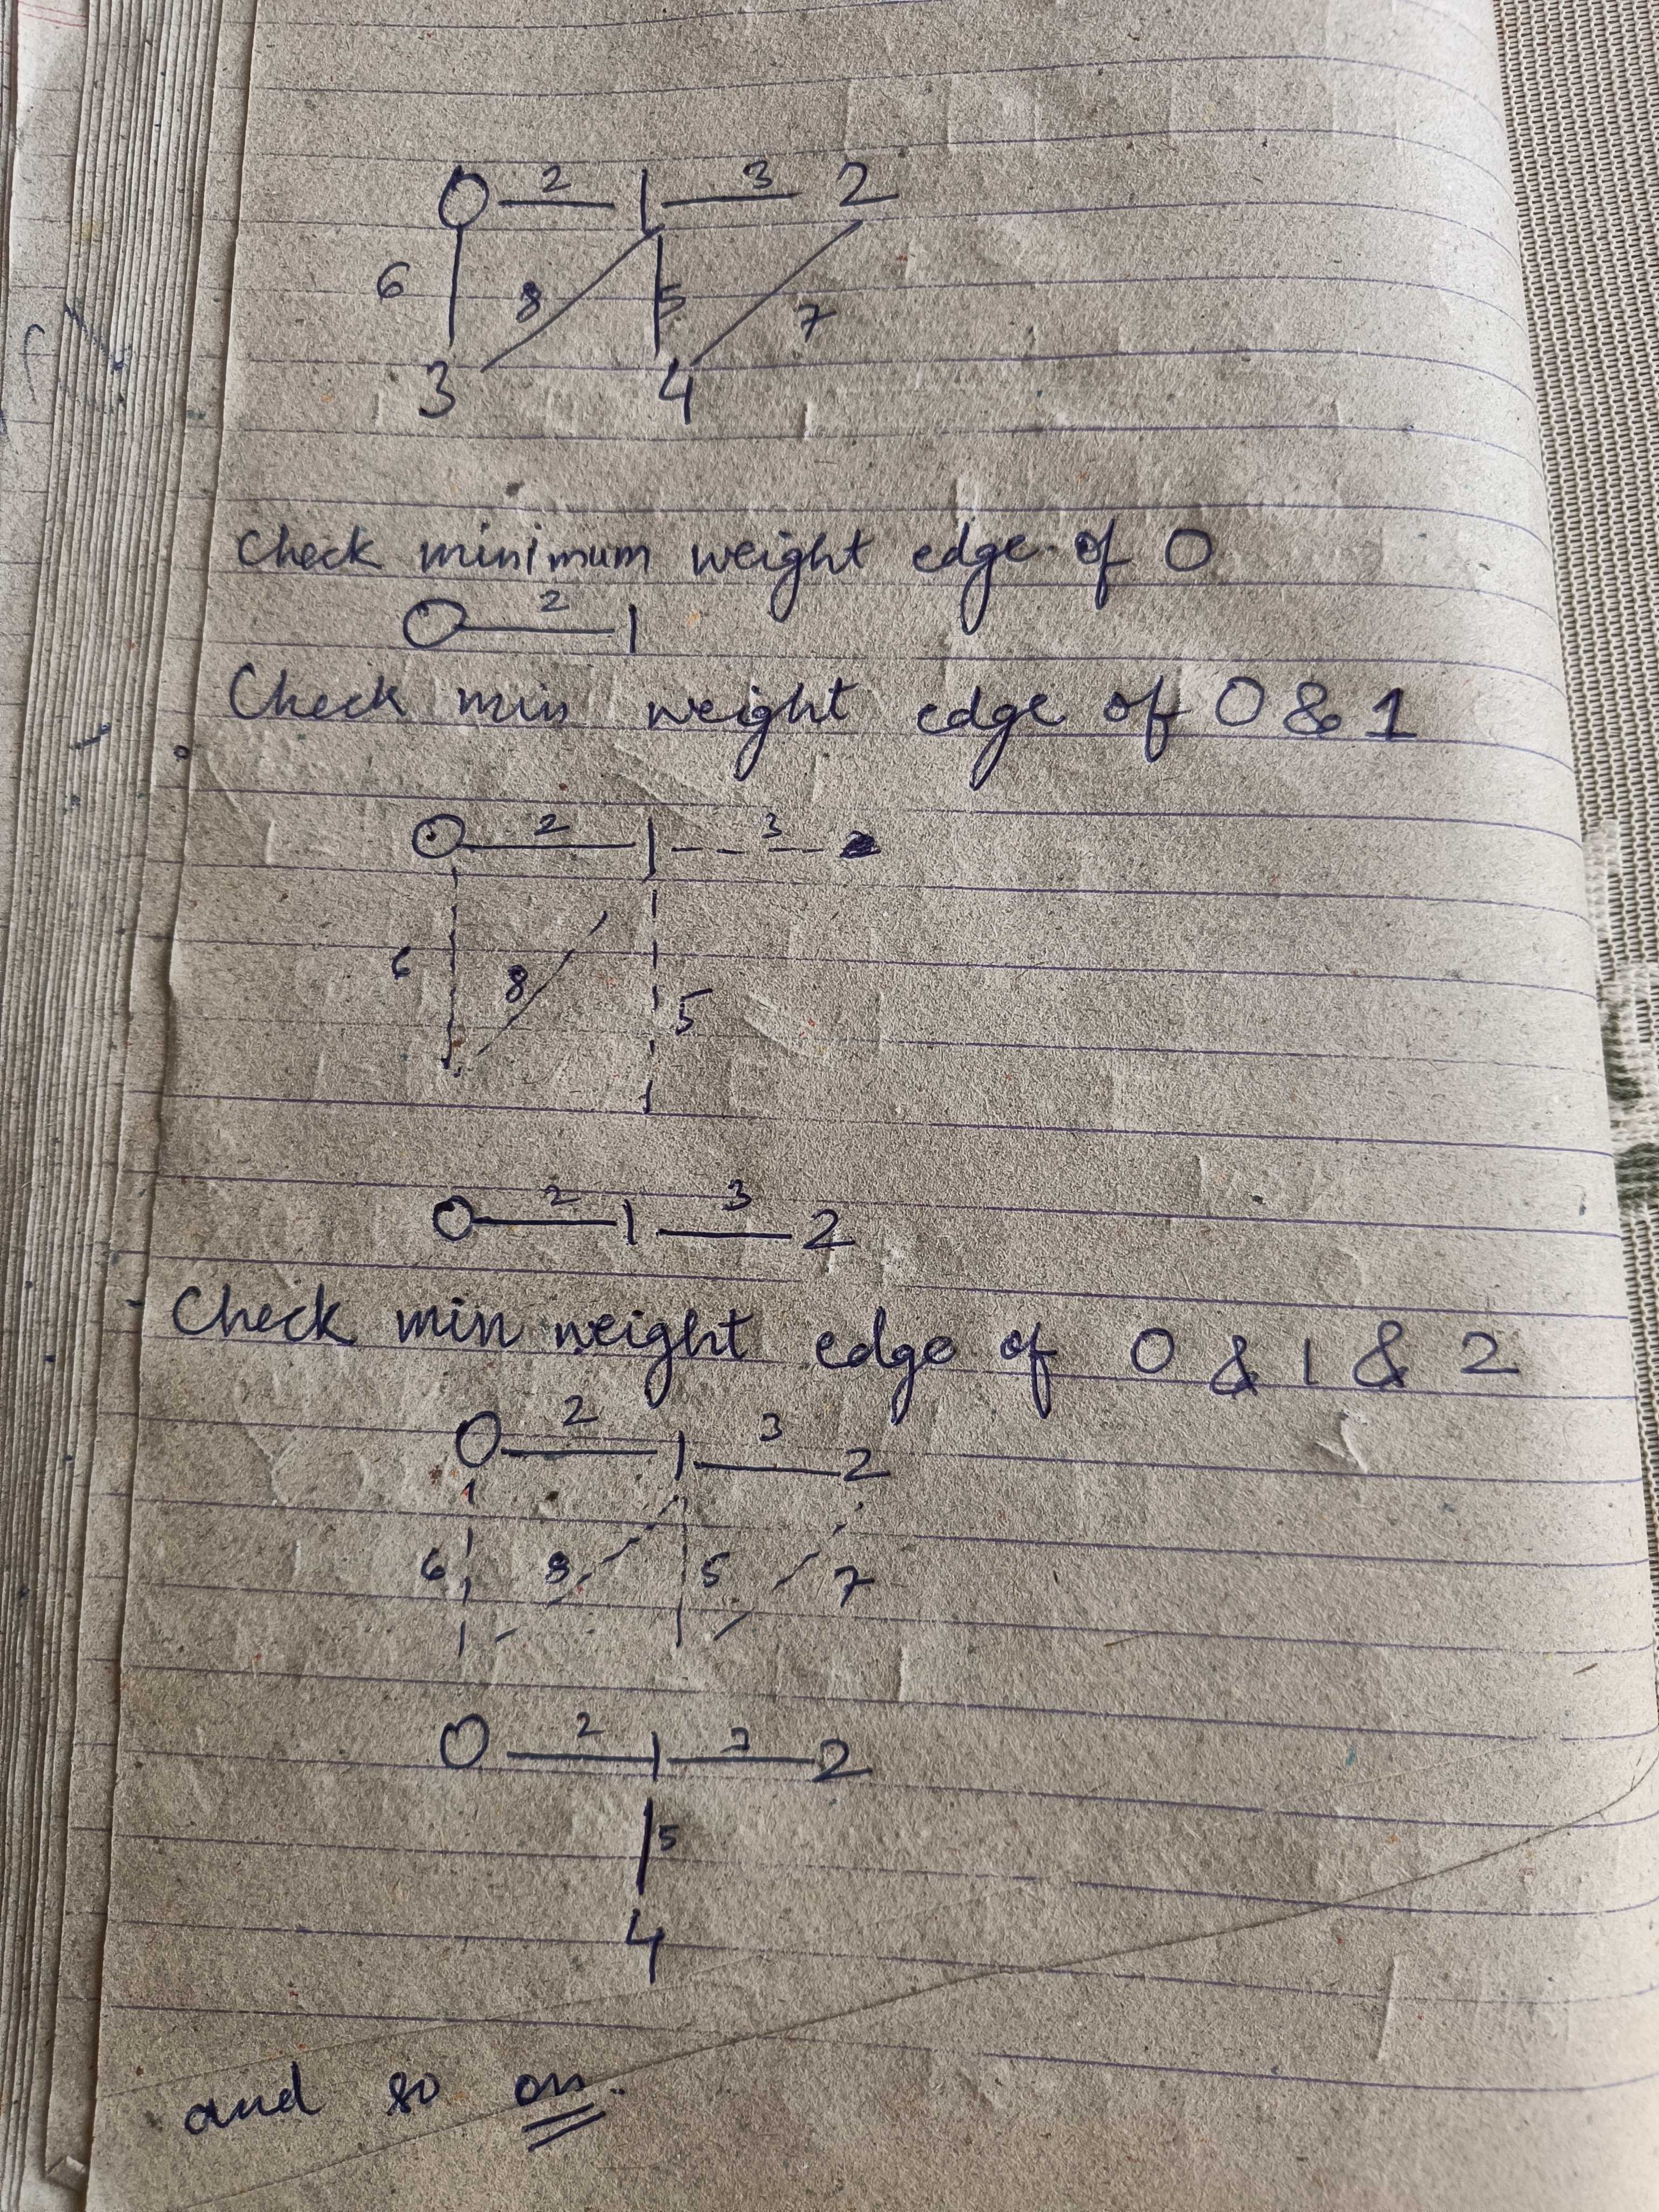 0 2 1 3 2
6 8 5 7
3 4
Check minimum weight edge of 0
0 2 1
Check min weight edge of 0 & 1
0 2 1 3
6 8 5
0 2 1 3 2
Check min weight edge of 0 & 1 & 2
0 2 1 3 2
6 8 5 7
0 2 1 3 2
5
4
and so on.